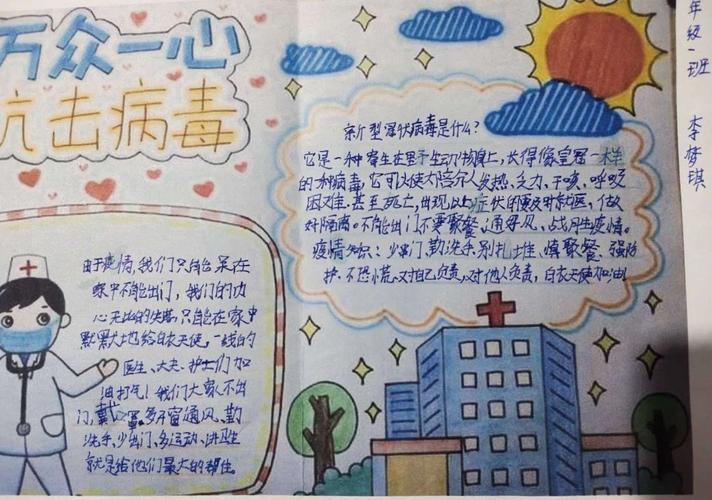 万众一心
抗击病毒
新型冠状病毒是什么?
它是一种寄生在野生动物身上,长得像皇冠一样
的一种病毒,它可以使大部分人发热、乏力、干咳、呼吸
困难、甚至死亡,出现以上症状的要及时就医,做
好隔离。不能出门不要聚餐、通好风、战胜疫情。
疫情知识:少出门、勤洗手、别扎堆、慎聚餐、强防
护、不恐慌、对自己负责,对他人负责,白衣天使加油!
由于疫情,我们只能呆在
家中不能出门,我们的内
心无比的
只能在家中
默默大地给白衣天使,一线的
医生、大夫、护士们加
油打气!我们大家不出
门,戴口罩,多开窗通风、勤
洗手、少出门、多运动、讲卫生
就是给他们最大的帮助
年级一班 李梦琪